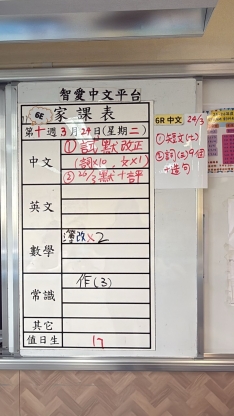 智愛中文平台
6E 家課表
第十週3月24日(星期二)
中文 ①試默改正
(詞x10、文x1)
②26/3默+評
英文
數學 x2
常識 作(3)
其它
值日生 17
6R 中文 24/3
①短文(七)
②詞(三)9個
+造句